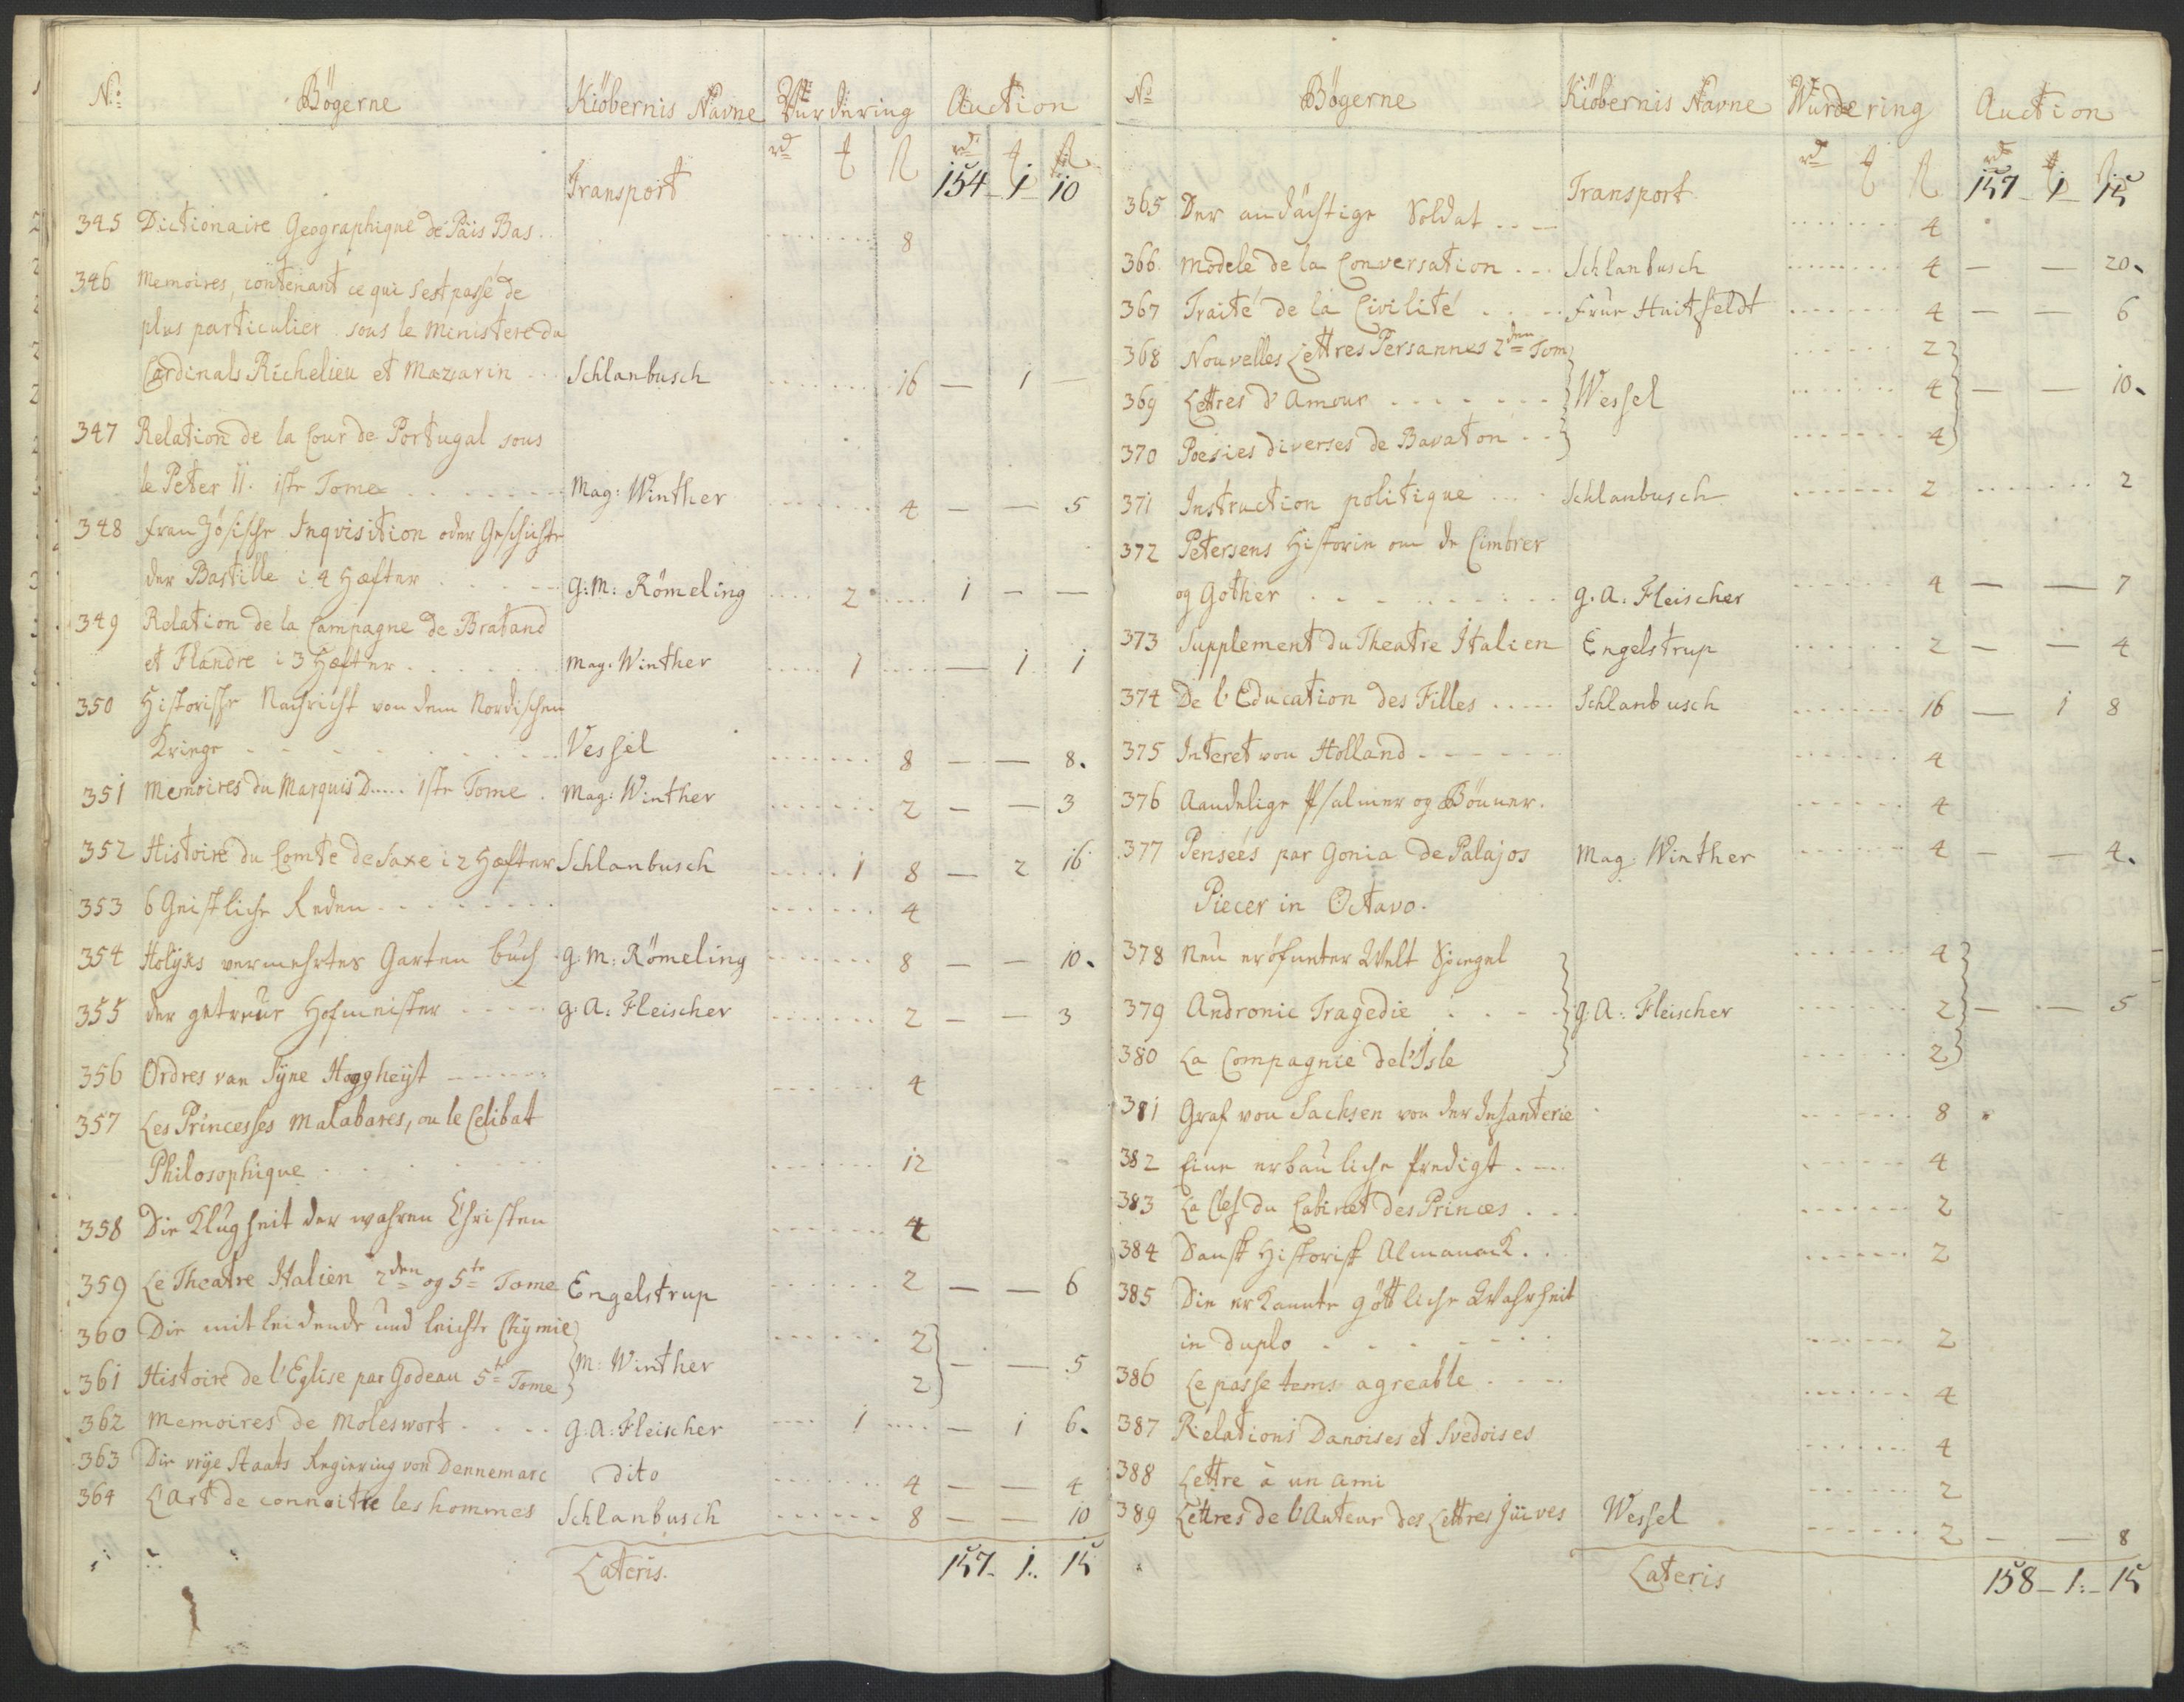 No Bögerne Kiöbernis Navne Vurdering Auction
rd ₰ ß rd ₰ ß
Transport 154 - 1 - 10
345 Dictionaire Geographique de Päis Bas . . 8
346 Memoires, contenant ce qui s'est passé de
plus particulier sous le Ministere du
Cardinals Richelieu et Mazarin . . Schlanbusch 16 — 1 —
347 Relation de la Cour de Portugal sous
le Peter II. 1ste Tome . . . Mag: Winther 4 — — 5
348 Französische Inqvisition oder Geschichte
der Bastille i 4 Hæfter . . . G: M: Römeling 2 1 — —
349 Relation de la Campagne de Braband
et Flandre i 3 Hæfter . . . Mag. Winther 1 — 1 1
350 Historische Nachricht von dem Nordischen
Kriege . . . Vessel 8 — — 8.
351 Memoires du Marquis D..... 1ste Tome . Mag: Winther 2 — — 3
352 Histoire du Comte de Saxe i 2 Hæfter Schlanbusch 1 8 — 2 16
353 6 Geistliche Reden . . . 4
354 Holÿks vermehrtes Garten buch . G: M: Römeling 8 — — 10.
355 der getreue Hofmeister . . . G: A: Fleischer 2 — — 3
356 Ordres van Sÿne Hoogheÿt . . . 4
357 Les Princesses Malabares, ou le Celibat
Philosophique . . . 12
358 Die Klugheit der wahren Christen 4
359 Le Theatre Italien 2den og 5te Tome Engelstrup 2 — — 6
360 Die mitleidende und leichte Chymie 2
M: Winther — — 5
361 Histoire de l'Eglise par Godeau 5te Tome 2
362 Memoires de Moleswort . . . G: A: Fleischer 1 — 1 6.
363 Die vrÿe Staats Regiering von Dennemarc dito 4 — — 4
364 L'Art de connoitre les hommes Schlanbusch 8 — — 10
Lateris. 157 - 1 : 15
No Bögerne Kiöbernis Navne Wurdering Auction
rd ₰ ß rd ₰ ß
Transport 157 - 1 - 15
365 Der andächtige Soldat . . . 4
366 Modele de la Conversation . . . Schlanbusch 4 — — 20.
367 Traité de la Civilité . . . Frue Huitfeldt 4 — — 6
368 Nouvelles Lettres Persannes 2den Tom 2
369 Lettres d'Amour . . . Wessel 4 — — 10.
370 Poesies diverses de Bavaton . . 4
371 Instruction politique . . . Schlanbusch 2 2
372 Petersens Historie om de Cimbrer
og Gother . . . G. A: Fleischer 4 — — 7
373 Supplement du Theatre Italien Engelstrup 2 — — 4
374 De l'Education des Filles . . . Schlanbusch 16 — 1 8
375 Interet von Holland . . . 4
376 Aandelige Psalmer og Bönner. 4
377 Pensées par Gonia de Palajos Mag: Winther 4 — — 4.
Piecer in Octavo.
378 Neu eröfneter Welt Spiegel 4
379 Andronic Tragedie . . . G: A: Fleischer 2 — — 5
380 La Compagnie de l'Isle 2
381 Graf von Sachsen von der Infanterie 8
382 Eine erbauliche Predigt . . . 4
383 La Clef du Cabinet des Princes . . . 2
384 Dansk Historisk Almanack . . . 2
385 Die erkannte göttliche Wahrheit
in duplo . . . 2
386 Le passe tems agreable . . . 4
387 Relations Danoises et Svedoises 4
388 Lettre à un ami 2
389 Lettres de l'Auteur des Lettres Juives Wessel 2 — — 8
Lateris 158 - 1 : - 15